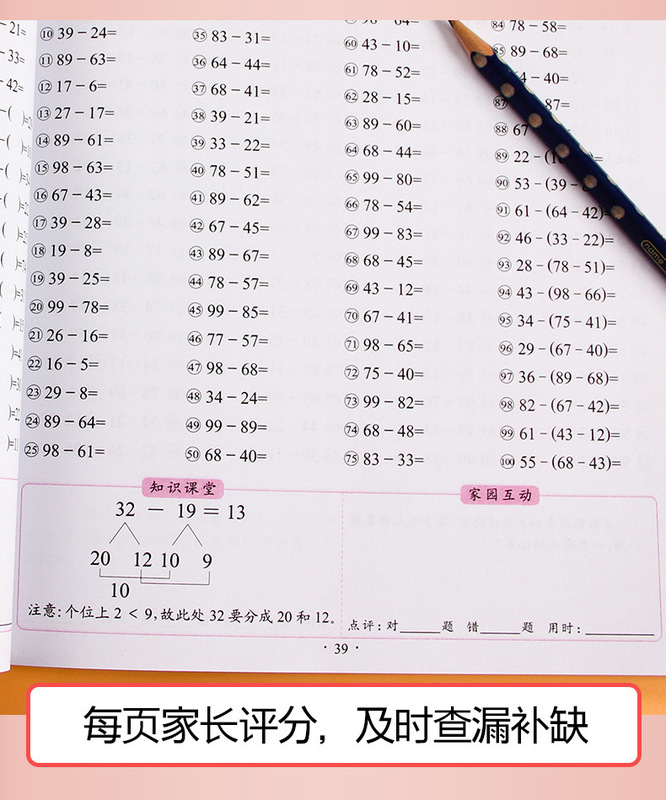 21=
33=
42=
⑩ 39－24=
⑪ 89－63=
⑫ 17－6=
⑬ 27－17=
⑭ 89－61=
⑮ 98－63=
⑯ 67－43=
⑰ 39－28=
⑱ 19－8=
⑲ 39－25=
⑳ 99－78=
㉑ 26－16=
㉒ 16－5=
㉓ 29－8=
㉔ 89－64=
㉕ 98－61=
㉟ 83－31=
㊱ 64－44=
㊲ 68－41=
㊳ 39－21=
㊴ 33－22=
㊵ 78－51=
㊶ 89－62=
㊷ 67－45=
㊸ 89－67=
㊹ 78－57=
㊺ 99－85=
㊻ 77－57=
㊼ 98－68=
㊽ 34－24=
㊾ 99－89=
㊿ 68－40=
60 43－10=
61 78－52=
62 28－15=
63 89－60=
64 68－44=
65 99－80=
66 78－54=
67 99－83=
68 68－45=
69 43－12=
70 67－41=
71 98－65=
72 75－40=
73 99－82=
74 68－48=
75 83－33=
84 78－58=
85 89－68=
4－40=
87 87=
88 67
89 22－(1 )=
90 53－(39－
91 61－(64－42)=
92 46－(33－22)=
93 28－(78－51)=
94 43－(98－66)=
95 34－(75－41)=
96 29－(67－40)=
97 36－(89－68)=
98 82－(67－42)=
99 61－(43－12)=
100 55－(68－43)=
知识课堂
32 － 19 = 13
20 12 10 9
10
注意:个位上 2 < 9,故此处 32 要分成 20 和 12。
家园互动
点评:对____题 错____题 用时:________
· 39 ·
name
每页家长评分，及时查漏补缺